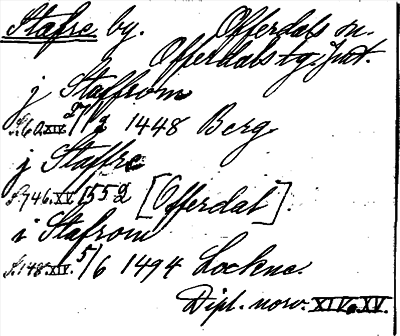 Stafre by. Offerdals sn.
Offerdals tg. Jmt.
j Staffrom
s. 60. XIV. 27/2 1448 Berg
j Staffre
s. 746. XV. 1552 [Offerdal].
i Stafrom
s. 148. XIV. 5/6 1494 Lockne.
Dipl. norv. XIV. XV.